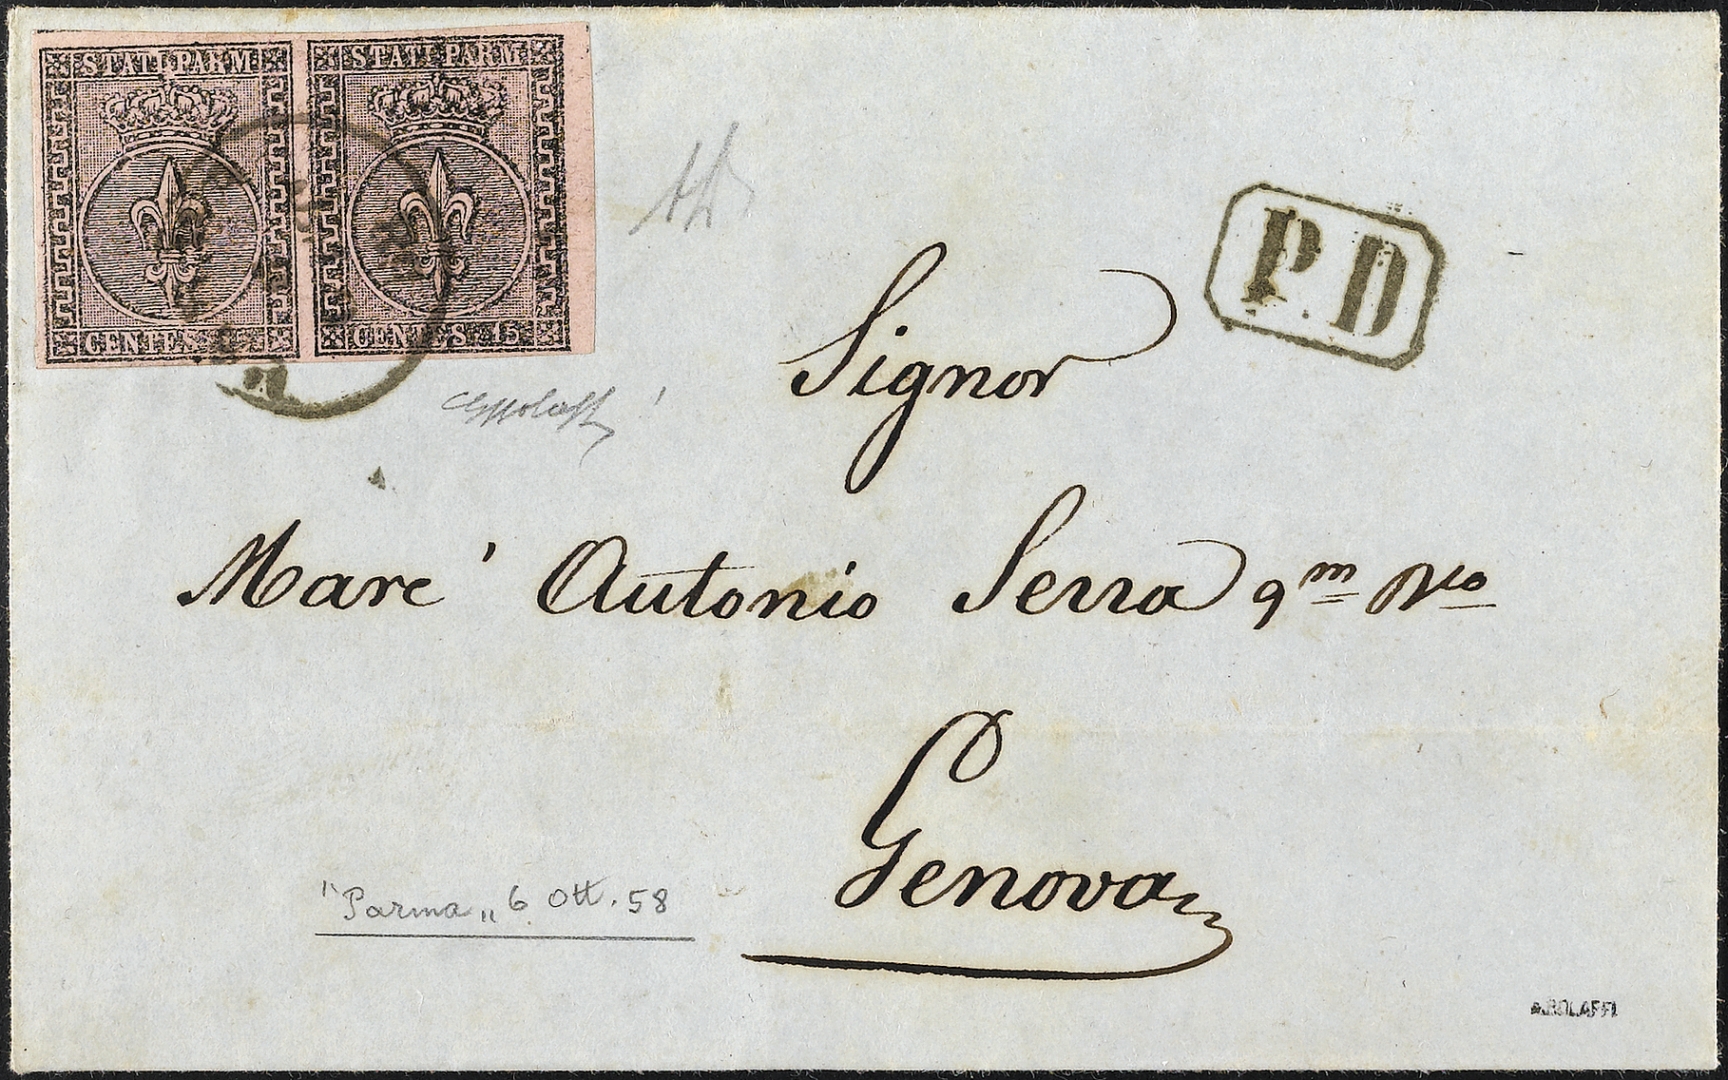 STATI PARM STATI PARM
CENTES CENTES 15
P.D
Signor
Marc' Antonio Serra qm
Genova
"Parma„ 6 Ott. 58
A.BOLAFFI